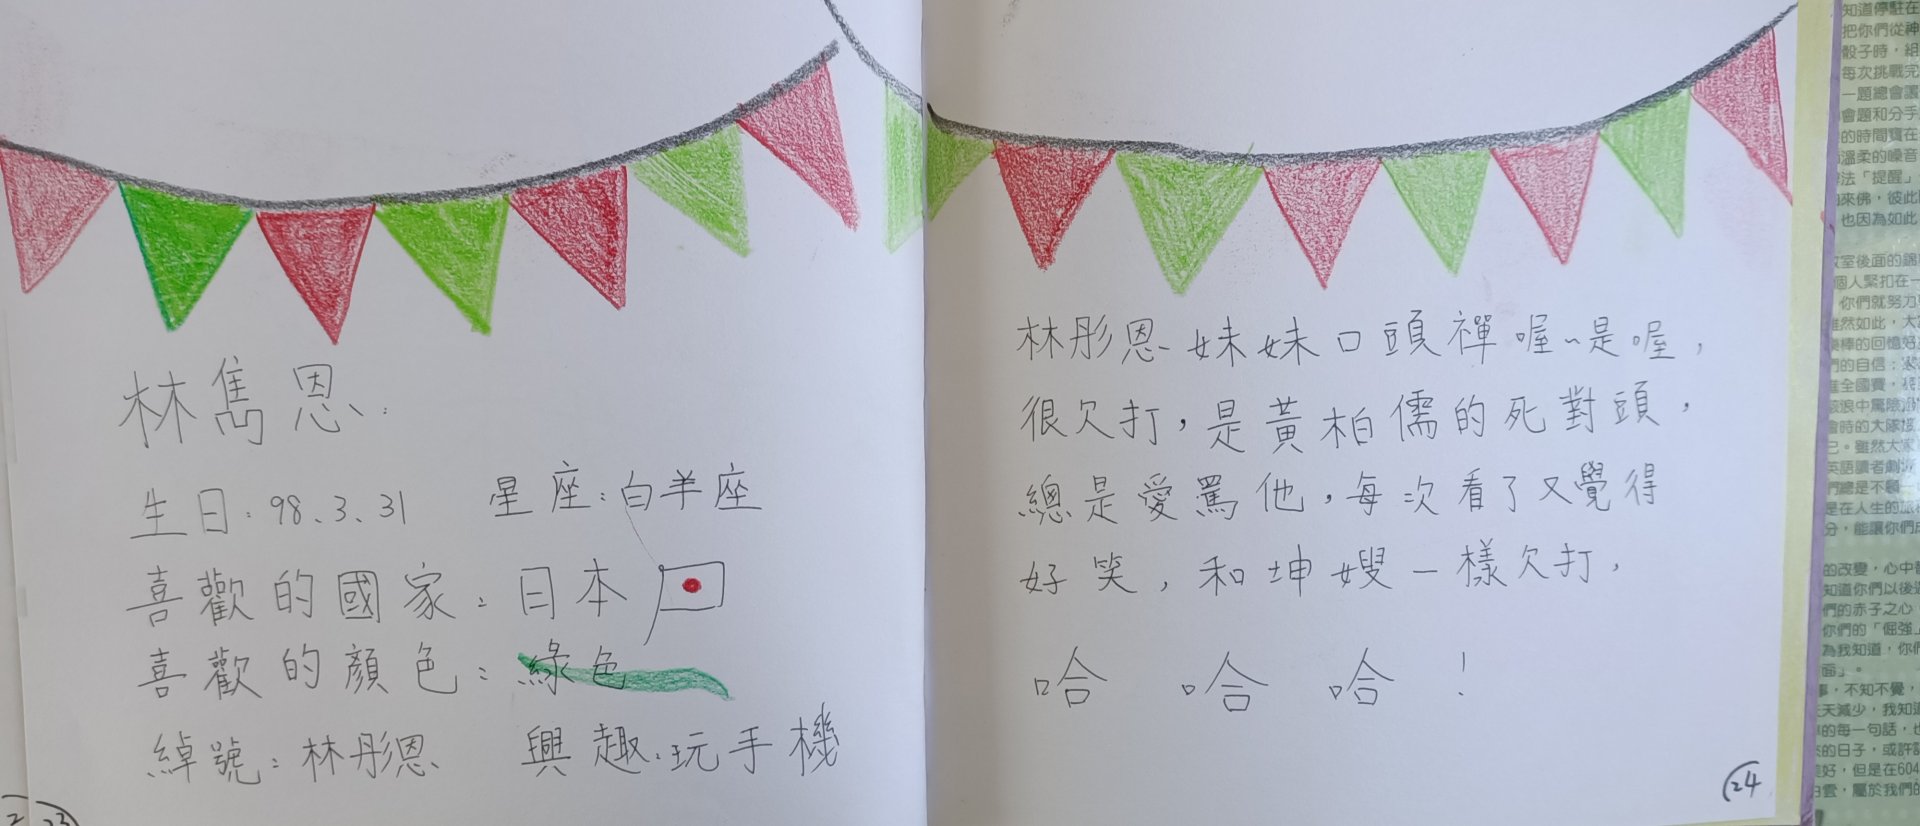 林雋恩:
生日:98、3、31 星座:白羊座
喜歡的國家:日本
喜歡的顏色:綠色
綽號:林彤恩 興趣:玩手機
23
林彤恩妹妹口頭禪喔~是喔,
很欠打,是黃柏儒的死對頭,
總是愛罵他,每次看了又覺得
好笑,和坤嫂一樣欠打,
哈 哈 哈 !
24
知道停駐在
把你們從神
骰子時,組
每次挑戰完
一題總會讓
會題和分手
的時間實在
溫柔的噪音
法「提醒」
來佛,彼此
也因為如此
室後面的錦
個人緊扣在一
你們就努力
雖然如此,大
棒的回憶好
們的自信;
全國賽,
浪中驚險
會時的大隊接
己。雖然大家
英語讀者劇
們總是不
是在人生的旅
分,能讓你們
的改變,心中
知道你們以後
們的赤子之心
你們的「倔強」
為我知道,你們
面」。
事,不知不覺,
天減少,我知道
的每一句話,也
的日子,或許
好,但是在604
白雲,屬於我們的